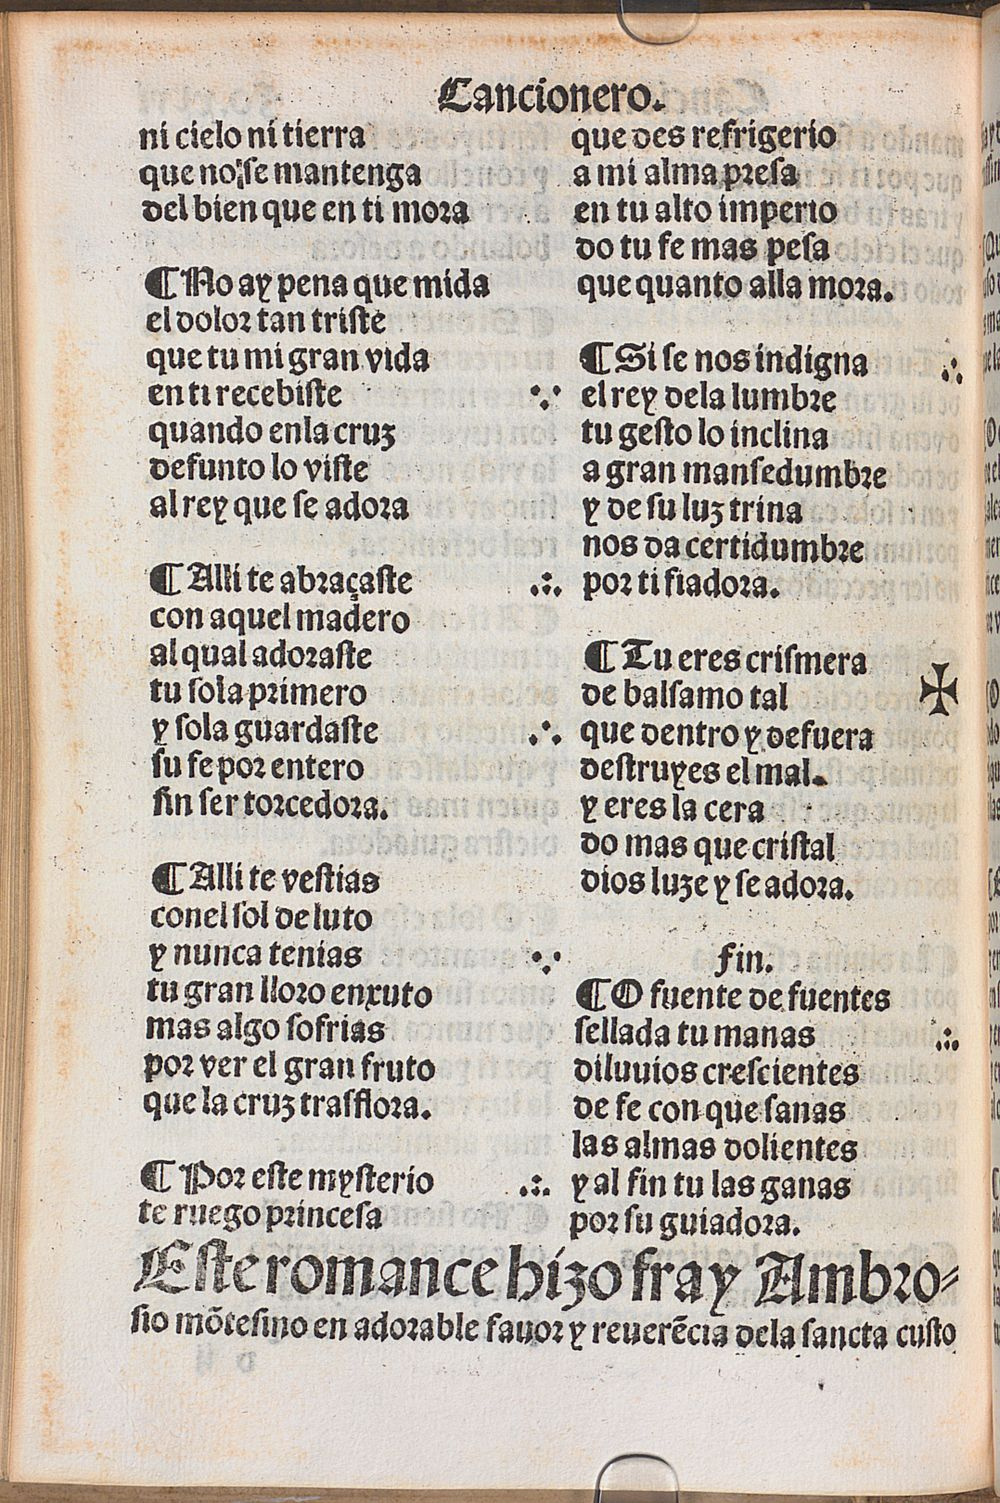 Cancionero.
ni cielo ni tierra
que no se mantenga
del bien que en ti mora
¶ No ay pena que mida
el dolor tan triste
que tu mi gran vida
en ti recebiste
quando enla cruz
defunto lo viste
al rey que se adora
¶ Alli te abraçaste
con aquel madero
al qual adoraste
tu sola primero
y sola guardaste
su fe por entero
sin ser torcedora.
¶ Alli te vestias
conel sol de luto
y nunca tenias
tu gran lloro enxuto
mas algo sofrias
por ver el gran fruto
que la cruz trasflora.
¶ Por este mysterio
te ruego princesa
que des refrigerio
a mi alma presa
en tu alto imperio
do tu fe mas pesa
que quanto alla mora.
¶ Si se nos indigna
el rey dela lumbre
tu gesto lo inclina
a gran mansedumbre
y de su luz trina
nos da certidumbre
por ti fiadora.
¶ Tu eres crismera
de balsamo tal
que dentro y defuera
destruyes el mal.
y eres la cera
do mas que cristal
dios luze y se adora.
fin.
¶ O fuente de fuentes
sellada tu manas
diluuios crescientes
de fe con que sanas
las almas dolientes
y al fin tu las ganas
por su guiadora.
Este romance hizo fray Ambro-
sio mõtesino en adorable fauor y reuerẽcia dela sancta custo